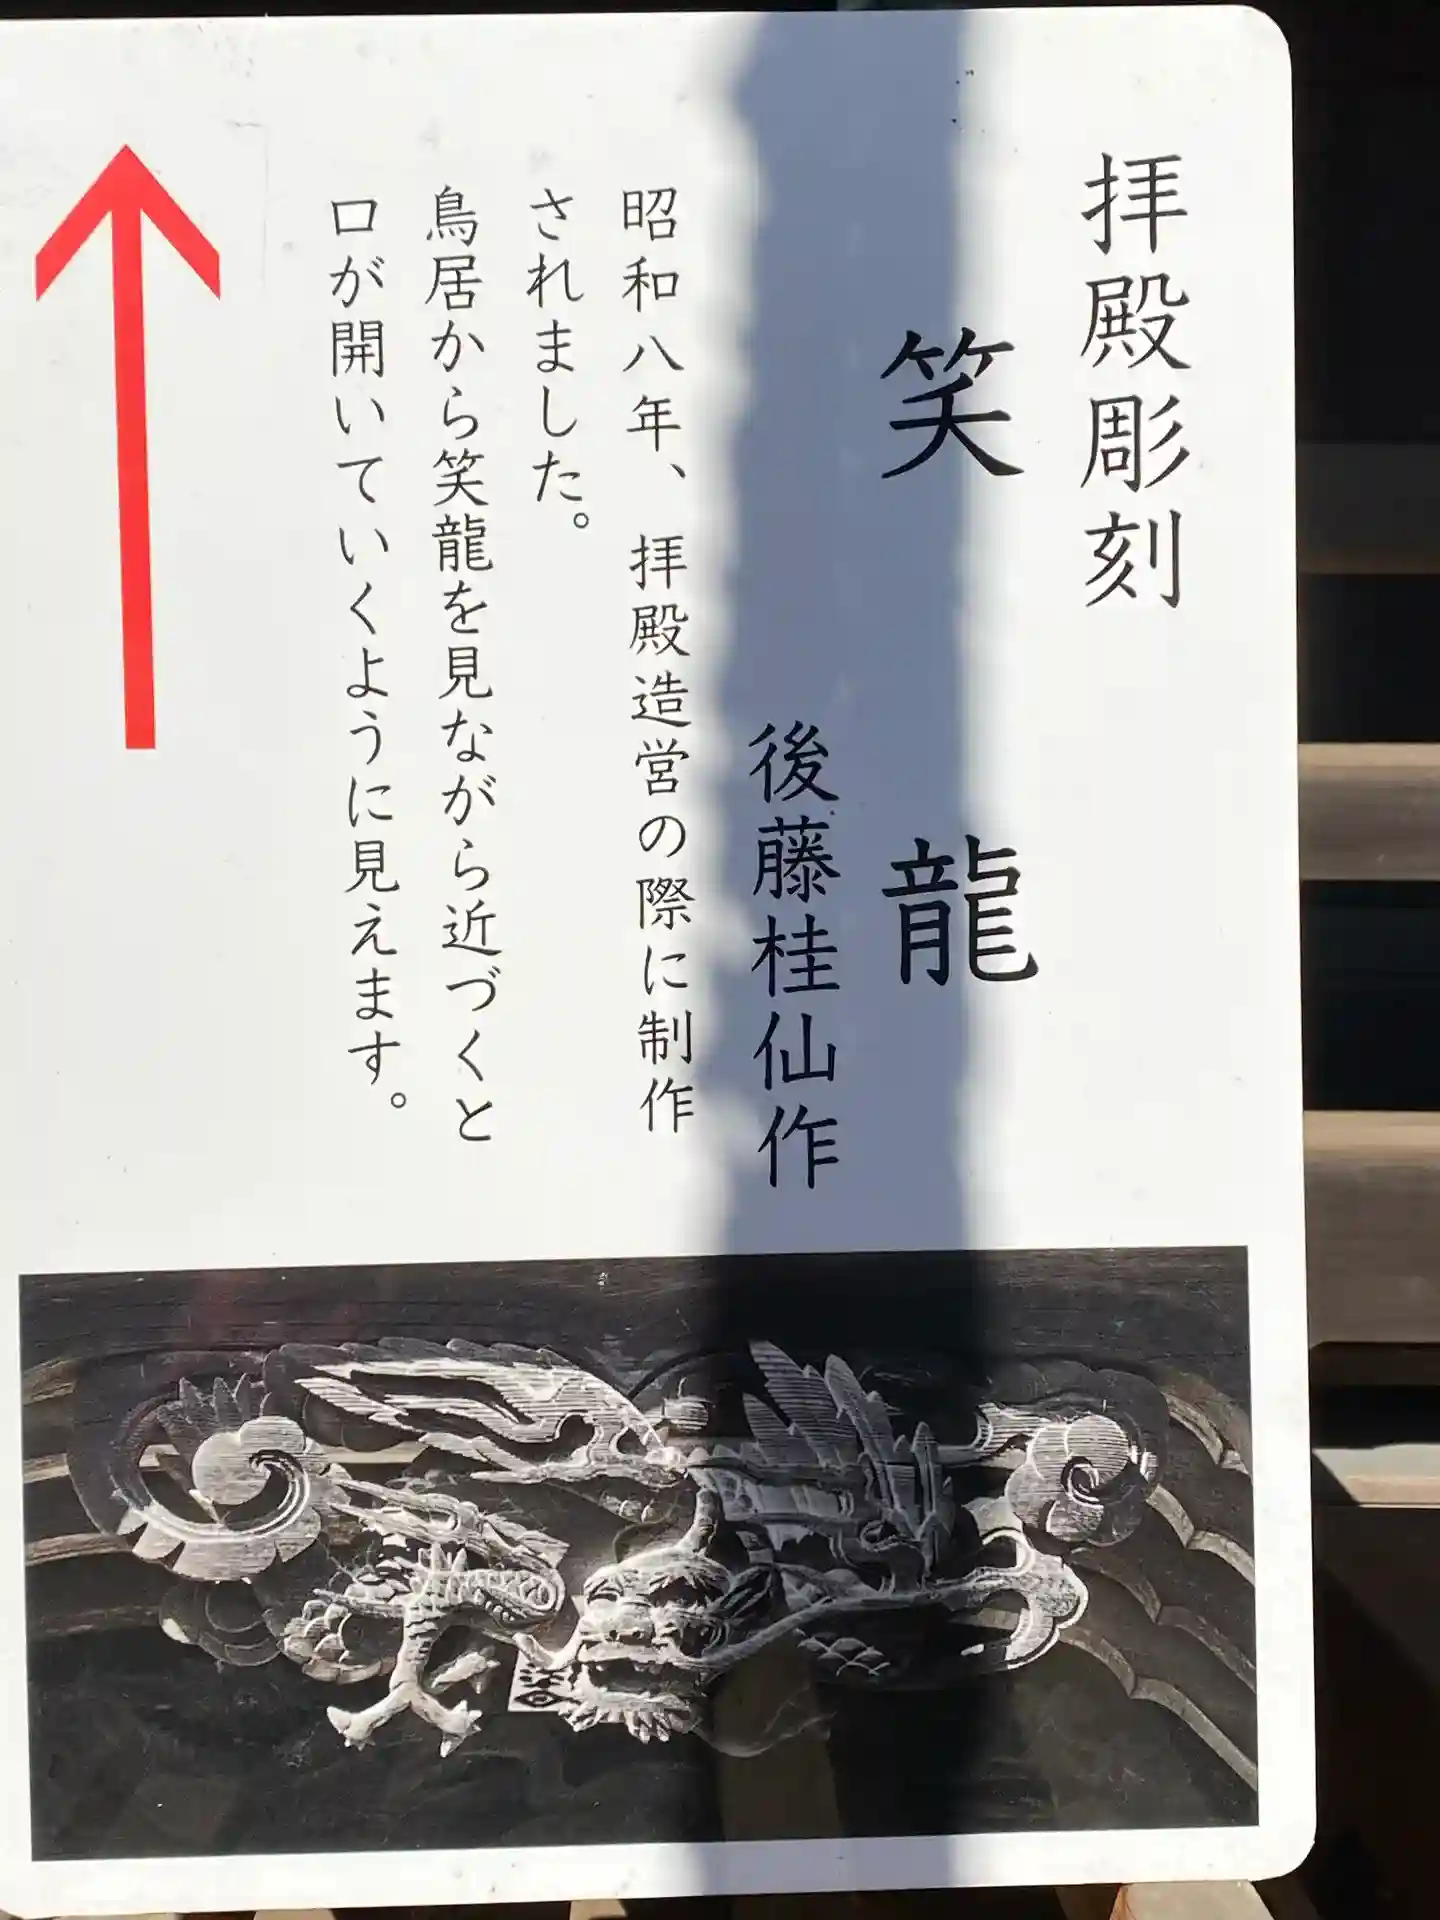 拝殿彫刻
笑龍
後藤桂仙作
昭和八年、拝殿造営の際に制作
されました。
鳥居から笑龍を見ながら近づくと
口が開いていくように見えます。